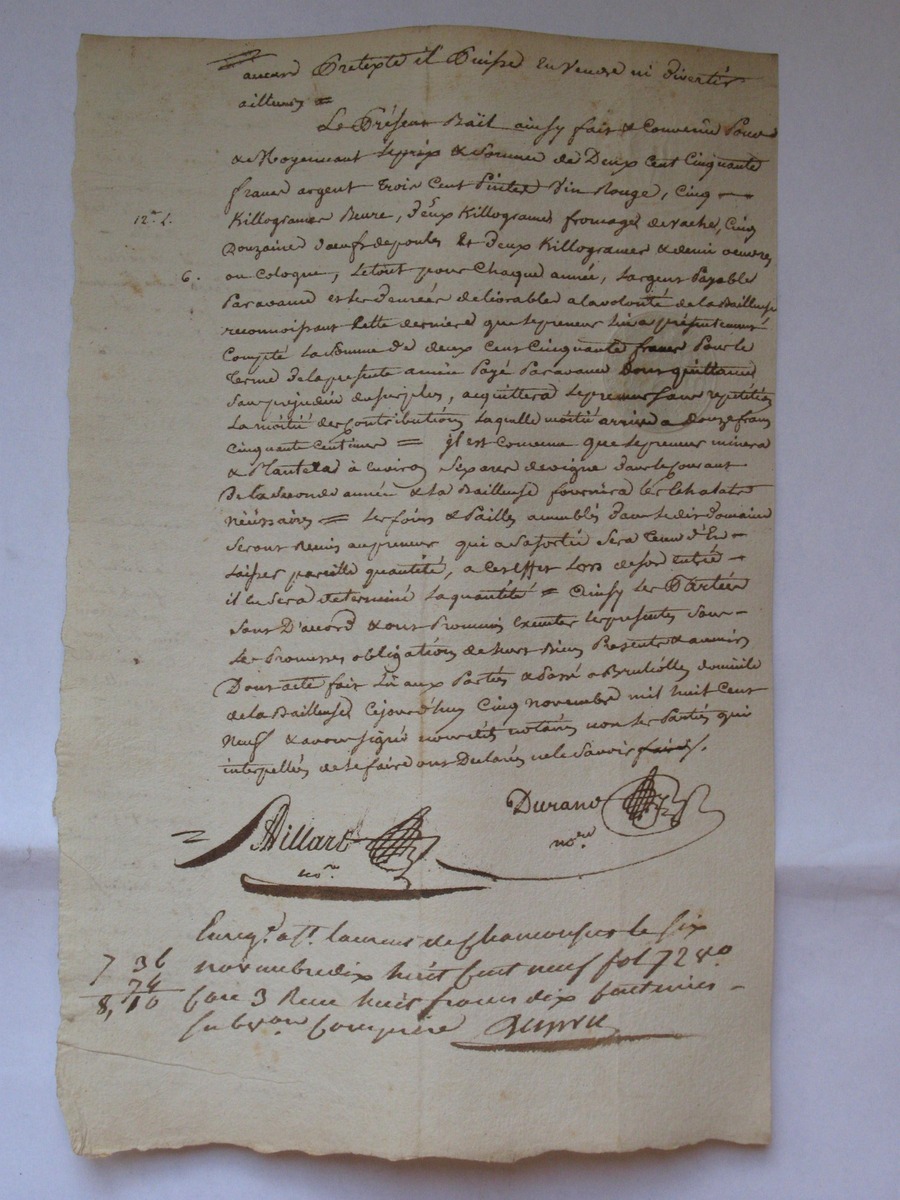 aucun Pretexte il Puisse en vendre ni divertir
ailleurs =
Le Présent Bail ainsy fait & Convenu Pour
& Moyennant le prix & Somme de Deux Cent Cinquante
francs argent trois Cent Pintes vin Rouge, Cinq
12.ᵗ L.
Killogrames Beure, deux Killogrames fromages de vache, Cinq
Douzaine d'oeufs de poules Et deux Killogrames & demi oeuvres
6.
ou Cologne, le tout pour Chaque année, l'argent Payable
Par avance et les denrées delivrables a la volonté de la Bailleuse
reconnoissant Cette derniere que le preneur lui a présentement
Compté La Somme de deux cent Cinquante francs Pour le
terme de la presente année Payé Par avance dont quittance
Sans prejudice du surplus, acquittera le preneur Sans repetition
La moitié des Contributions laquelle moitié arrive a douze francs
Cinquante Centimes = il est Convenu que le preneur minera
& Plantera à Environ de vigne dans le Courant
De la Seconde année & la Bailleuse fournira les Echalats
néssaires = les foins & Pailles dans le dit Domaine
Seront Remis au preneur qui a Sa sortie Sera tenu d'En
Laisser pareille quantité, a cet effet Lors de son entrée
il En Sera determiné la quantité = Ainsy les Parties
Sont D'accord & ont Promis Executer les presentes Sous
Les Promesses obligations de leurs Biens Presents & avenirs
Dont acte fait Lû aux Parties & Passé a Brullioles domicile
de la Bailleuse Cejourd'huy Cinq novembre mil huit Cent
Neuf & avons signé nous dits notaires non les Parties qui
interpellées de le faire ont Declarés ne le Savoir faire.
Durand
no.ʳᵉ
Villard
no.ʳᵉ
Enregᵗ. a Sᵗ. Laurent de Chamousset le Six
7 36
novembre dix huit Cent neuf fol 72 vº
74
8, 10
Case 3 Reçu huit francs dix Centimes
Subvᵒⁿ Comprise